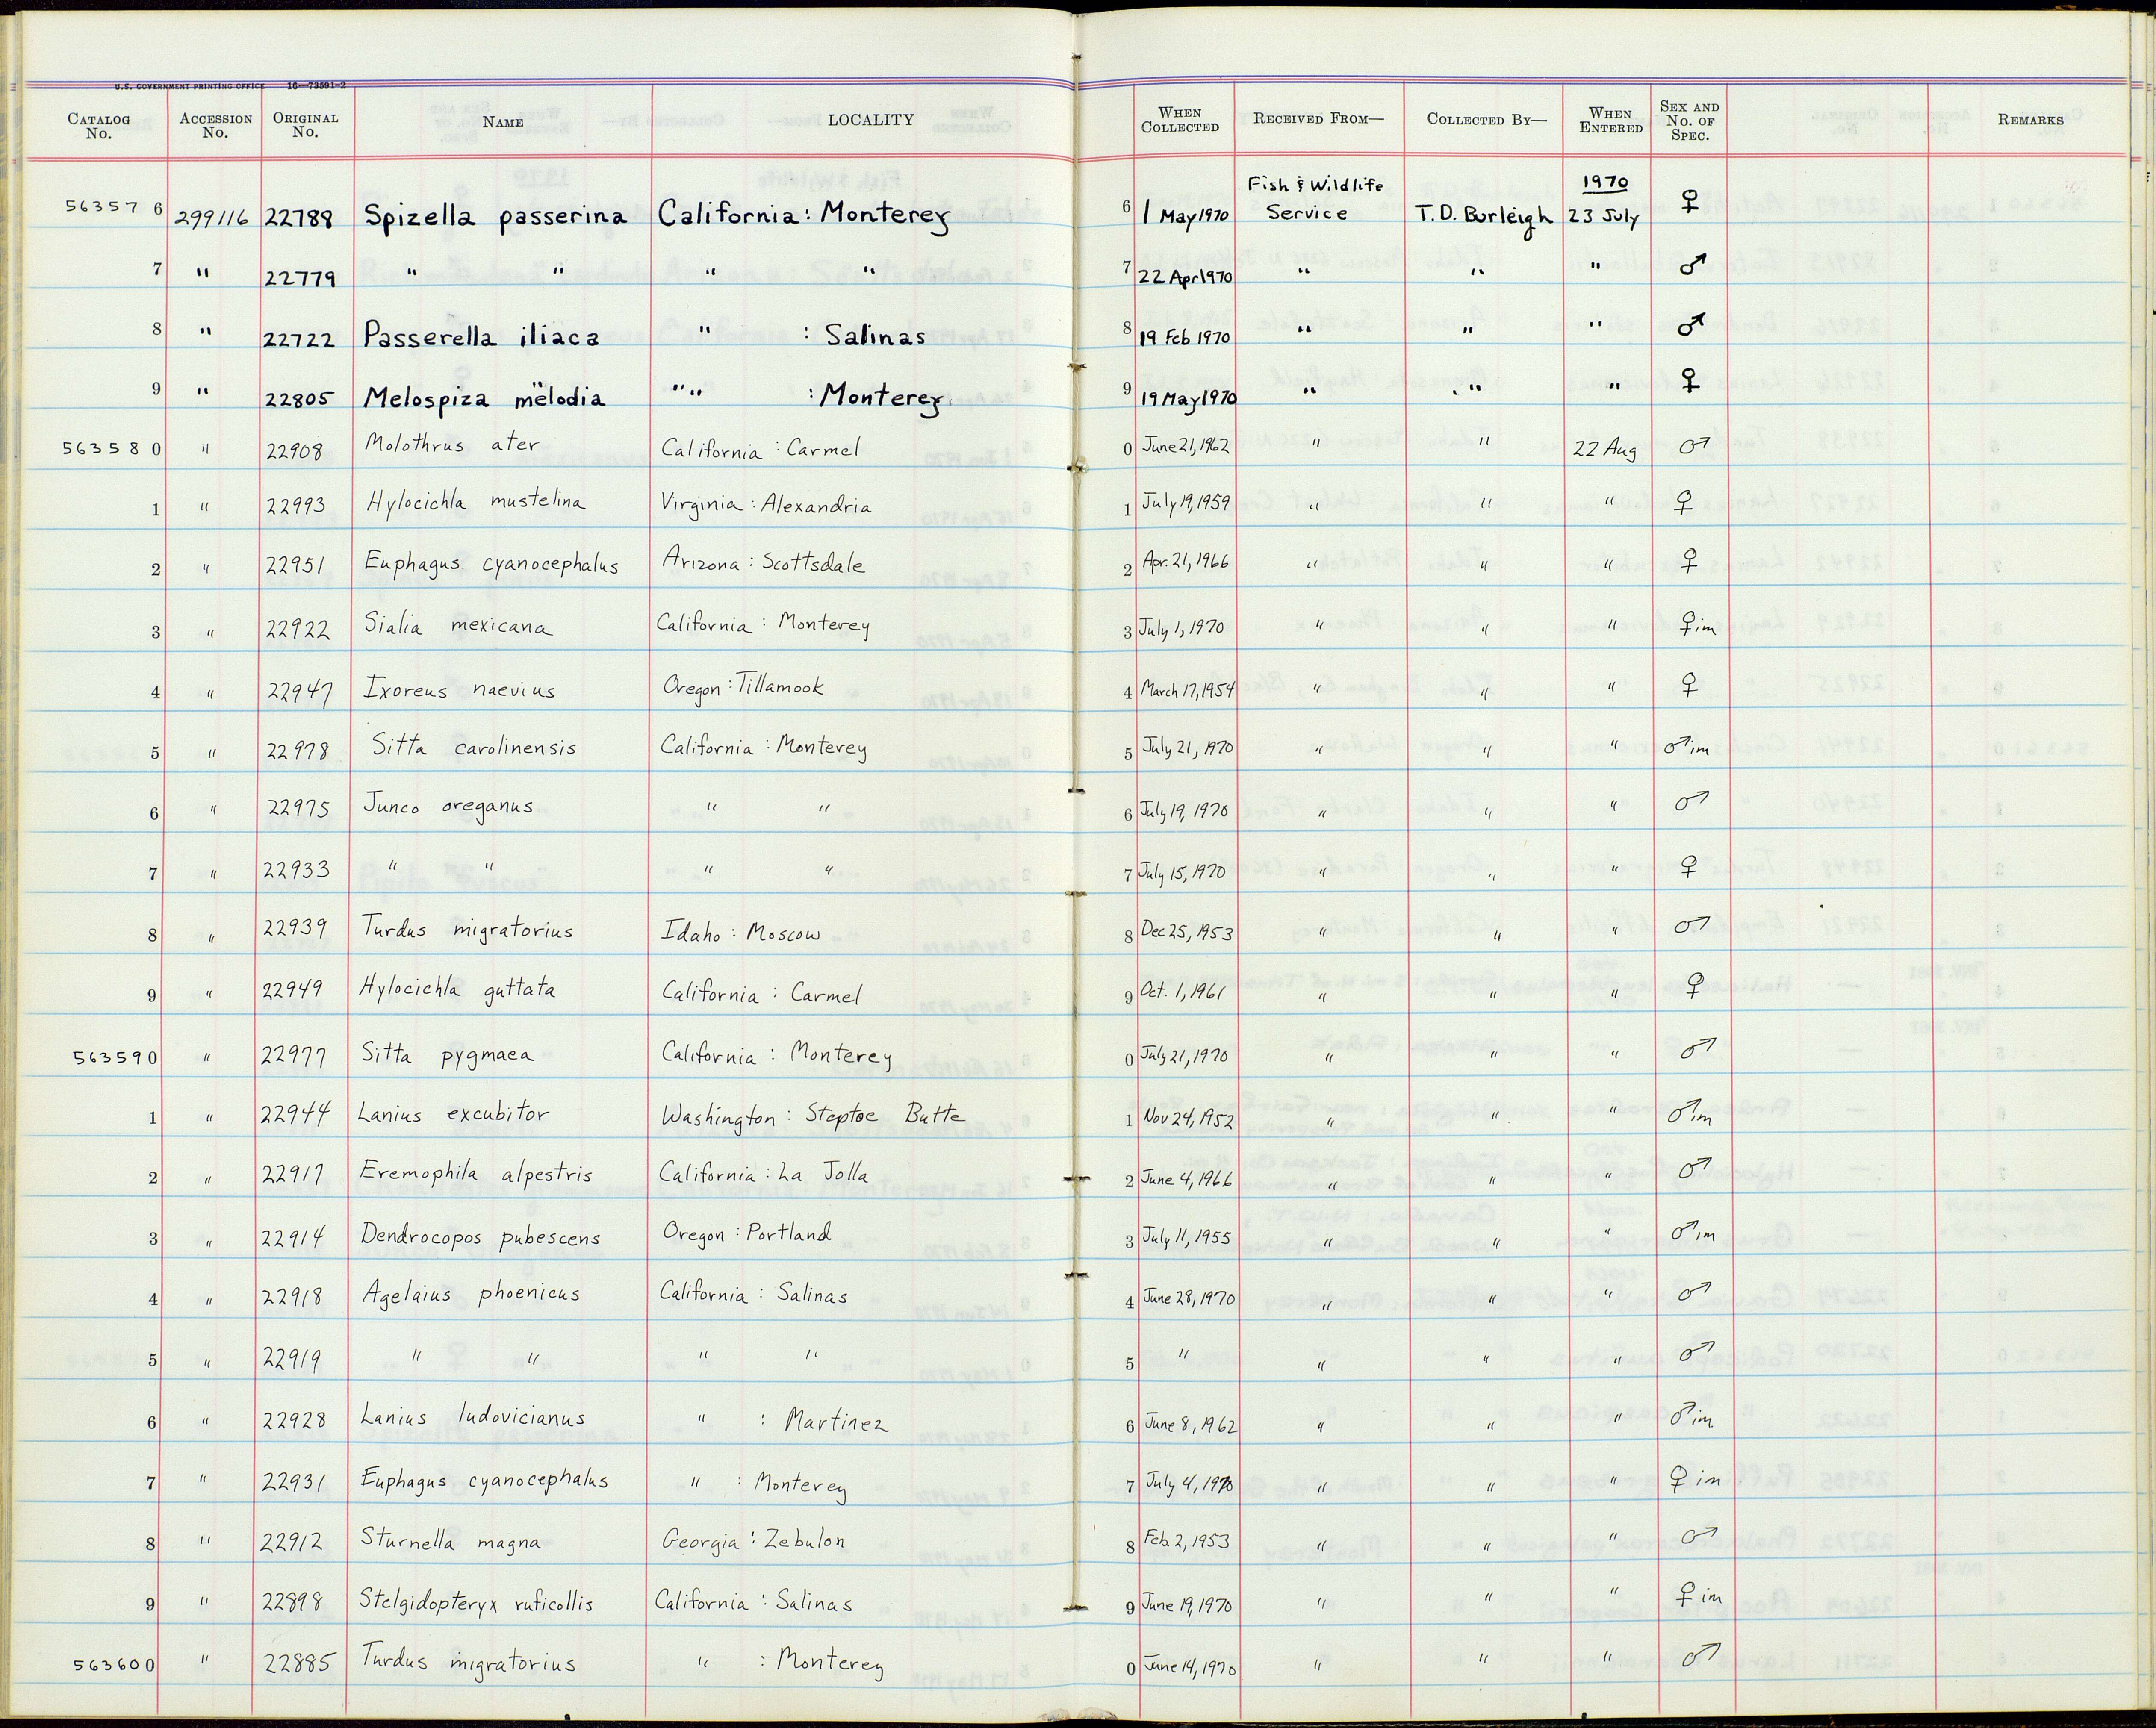 U.S. GOVERNMENT PRINTING OFFICE 16—73591-2
CATALOG No. ACCESSION No. ORIGINAL No. NAME LOCALITY WHEN COLLECTED RECEIVED FROM— COLLECTED BY— WHEN ENTERED SEX AND No. OF SPEC. REMARKS
56357 6 299116 22788 Spizella passerina California: Monterey 6 1 May 1970 Fish & Wildlife Service T.D. Burleigh 1970 23 July ♀
7 " 22779 " " " " 7 22 Apr 1970 " " " ♂
8 " 22722 Passerella iliaca " : Salinas 8 19 Feb 1970 " " " ♂
9 " 22805 Melospiza melodia " " : Monterey 9 19 May 1970 " " " ♀
56358 0 " 22908 Molothrus ater California : Carmel 0 June 21, 1962 " " 22 Aug ♂
1 " 22993 Hylocichla mustelina Virginia : Alexandria 1 July 19, 1959 " " " ♀
2 " 22951 Euphagus cyanocephalus Arizona : Scottsdale 2 Apr. 21, 1966 " " " ♀
3 " 22922 Sialia mexicana California : Monterey 3 July 1, 1970 " " " ♀ im
4 " 22947 Ixoreus naevius Oregon : Tillamook 4 March 17, 1954 " " " ♀
5 " 22978 Sitta carolinensis California : Monterey 5 July 21, 1970 " " " ♂ im
6 " 22975 Junco oreganus " " 6 July 19, 1970 " " " ♂
7 " 22933 " " " " 7 July 15, 1970 " " " ♀
8 " 22939 Turdus migratorius Idaho : Moscow 8 Dec 25, 1953 " " " ♂
9 " 22949 Hylocichla guttata California : Carmel 9 Oct. 1, 1961 " " " ♀
56359 0 " 22977 Sitta pygmaea California : Monterey 0 July 21, 1970 " " " ♂
1 " 22944 Lanius excubitor Washington : Steptoe Butte 1 Nov 24, 1952 " " " ♂ im
2 " 22917 Eremophila alpestris California : La Jolla 2 June 4, 1966 " " " ♂
3 " 22914 Dendrocopos pubescens Oregon : Portland 3 July 11, 1955 " " " ♂ im
4 " 22918 Agelaius phoenicus California : Salinas 4 June 28, 1970 " " " ♂
5 " 22919 " " " " 5 " " " " ♂
6 " 22928 Lanius ludovicianus " : Martinez 6 June 8, 1962 " " " ♂ im
7 " 22931 Euphagus cyanocephalus " : Monterey 7 July 4, 1970 " " " ♀ im
8 " 22912 Sturnella magna Georgia : Zebulon 8 Feb. 2, 1953 " " " ♂
9 " 22898 Stelgidopteryx ruficollis California : Salinas 9 June 19, 1970 " " " ♀ im
56360 0 " 22885 Turdus migratorius " : Monterey 0 June 14, 1970 " " " ♂